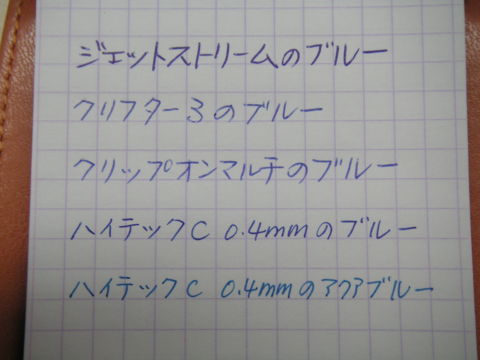 ジェットストリームのブルー
クリフター3のブルー
クリップオンマルチのブルー
ハイテックC 0.4mmのブルー
ハイテックC 0.4mmのアクアブルー